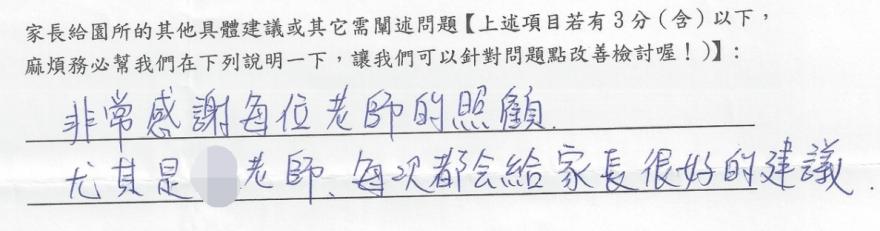 家長給園所的其他具體建議或其它需闡述問題【上述項目若有3分(含)以下，
麻煩務必幫我們在下列說明一下，讓我們可以針對問題點改善檢討喔！)】：
非常感謝每位老師的照顧.
尤其是 老師、每次都会給家長很好的建議.